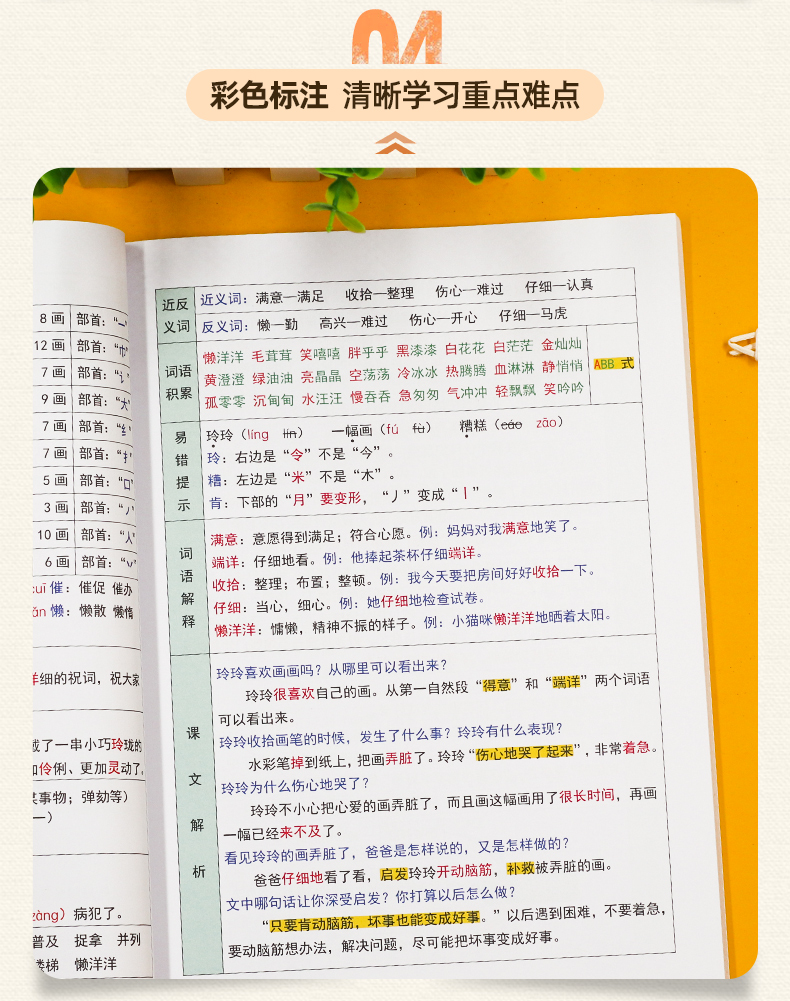 04
彩色标注 清晰学习重点难点
8画 部首：“一
12画 部首：“巾
7画 部首：“讠
9画 部首：“大
7画 部首：“纟
7画 部首：“扌
5画 部首：“口
3画 部首：“丿
10画 部首：“人
6画 部首：“丷
催：催促 催办
懒：懒散 懒惰
细的祝词，祝大家
了一串小巧玲珑的
伶俐、更加灵动了，
某事物；弹劾等）
一）
zàng）病犯了。
普及 捉拿 并列
楼梯 懒洋洋
近反义词
近义词：满意—满足 收拾—整理 伤心—难过 仔细—认真
反义词：懒—勤 高兴—难过 伤心—开心 仔细—马虎
词语积累
懒洋洋 毛茸茸 笑嘻嘻 胖乎乎 黑漆漆 白花花 白茫茫 金灿灿
黄澄澄 绿油油 亮晶晶 空荡荡 冷冰冰 热腾腾 血淋淋 静悄悄
孤零零 沉甸甸 水汪汪 慢吞吞 急匆匆 气冲冲 轻飘飘 笑吟吟
ABB 式
易错提示
玲玲（líng lín） 一幅画（fú fù） 糟糕（cáo zāo）
玲：右边是“令”不是“今”。
糟：左边是“米”不是“木”。
肯：下部的“月”要变形，“丿”变成“丨”。
词语解释
满意：意愿得到满足；符合心愿。例：妈妈对我满意地笑了。
端详：仔细地看。例：他捧起茶杯仔细端详。
收拾：整理；布置；整顿。例：我今天要把房间好好收拾一下。
仔细：当心，细心。例：她仔细地检查试卷。
懒洋洋：慵懒，精神不振的样子。例：小猫咪懒洋洋地晒着太阳。
课文解析
玲玲喜欢画画吗？从哪里可以看出来？
玲玲很喜欢自己的画。从第一自然段“得意”和“端详”两个词语
可以看出来。
玲玲收拾画笔的时候，发生了什么事？玲玲有什么表现？
水彩笔掉到纸上，把画弄脏了。玲玲“伤心地哭了起来”，非常着急。
玲玲为什么伤心地哭了？
玲玲不小心把心爱的画弄脏了，而且画这幅画用了很长时间，再画
一幅已经来不及了。
看见玲玲的画弄脏了，爸爸是怎样说的，又是怎样做的？
爸爸仔细地看了看，启发玲玲开动脑筋，补救被弄脏的画。
文中哪句话让你深受启发？你打算以后怎么做？
“只要肯动脑筋，坏事也能变成好事。”以后遇到困难，不要着急，
要动脑筋想办法，解决问题，尽可能把坏事变成好事。